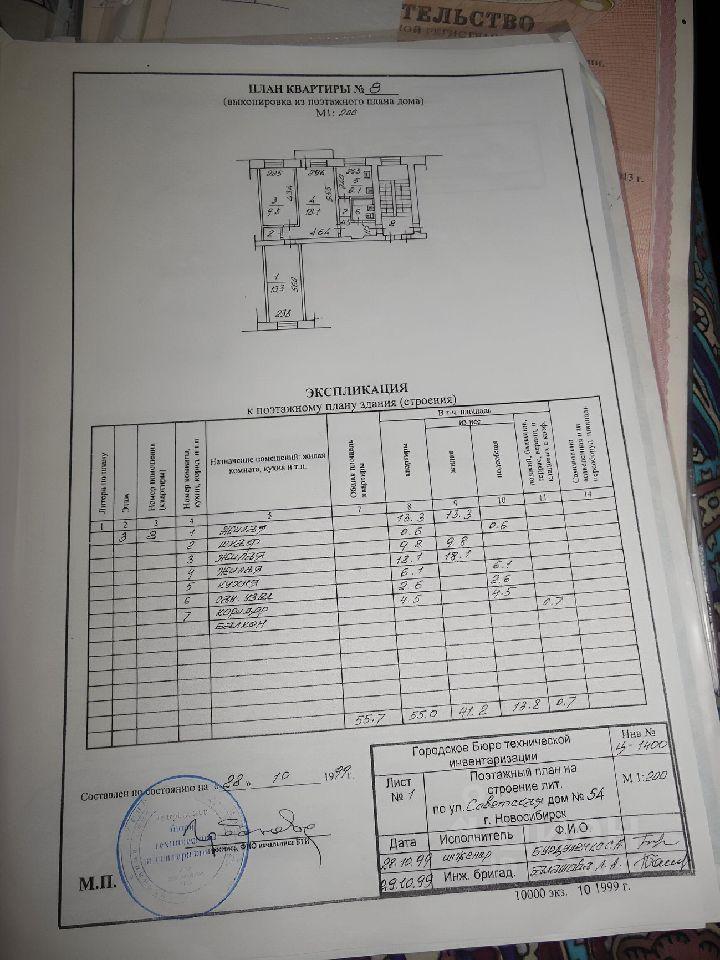 ТЕЛЬСТВО
ПЛАН КВАРТИРЫ № 8
(выкопировка из поэтажного плана дома)
М1: 200
1
13.3
3
9.8
4
18.1
5
6.1
2
7
6
464
ЭКСПЛИКАЦИЯ
к поэтажному плану здания (строения)
Литера по плану
Этаж
Номер помещения (квартиры)
Номер комнаты, кухни, корид. и т.п.
Назначение помещений: жилая комната, кухня и т.п.
Общая площадь квартиры
В т.ч. площадь
из нее
квартиры
жилая
подсобная
1 2 3 4 5 7 8 9 10 14
3 8 1 ЖИЛАЯ 13.3 13.3
2 ШКАФ 0.6 0.6
3 ЖИЛАЯ 9.8 9.8
4 ЖИЛАЯ 18.1 18.1
5 КУХНЯ 6.1 6.1
6 САН. УЗЕЛ 2.6 2.6
7 КОРИДОР 4.5 4.5
БАЛКОН 0.7
55.7 55.0 41.2 13.8 0.7
Составлен по состоянию на « 28 » 10 1999 г.
М.П.
Городское Бюро технической инвентаризации
Инв №
Ц-1400
Лист № 1
Поэтажный план на строение лит.
по ул. Советская дом № 54
г. Новосибирск
М 1:200
Дата Исполнитель Ф.И.О.
28.10.99 инженер
29.10.99 Инж. бригад.
10000 экз. 10 1999 г.